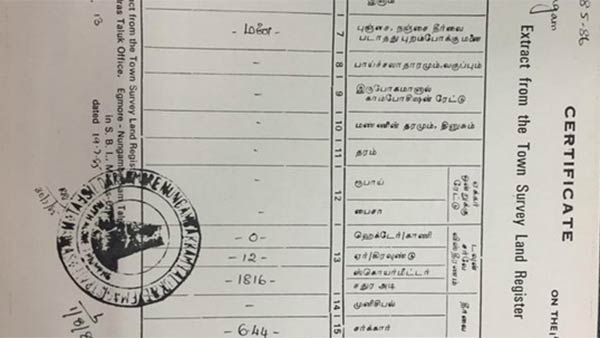 85-86
CERTIFICATE
Extract from the Town Survey Land Register
ON THE
7
புஞ்சை, நஞ்சை தீர்வை
படாதது புறம்போக்கு மனை
- மனை -
8
பாய்ச்சலாதாரமும், வகுப்பும்
-
9
இருபோகமானால்
காம்போசிஷன் ரேட்டு
-
10
மண்ணின் தரமும், தினுசும்
-
11
தரம்
-
12
ஏக்கர் ஒன்றுக்கு ரேட்டு
ரூபாய்
-
பைசா
-
13
டவுன் சர்வே விஸ்தீரணம்
ஹெக்டேர்/காணி
- 0 -
ஏர்/கிரவுண்டு
- 12 -
ஸ்கொயர்மீட்டர்
சதுர அடி
- 1816 -
14
தீர்வை
முனிசிபல்
-
15
சர்க்கார்
- 644 -
13
ract from the Town Survey Land Regis
dras Taluk Office, Egmore - Nungam
in S. B. I., M
dated 19-7-85
EGMORE NUNGAMBAKKAM TALUK